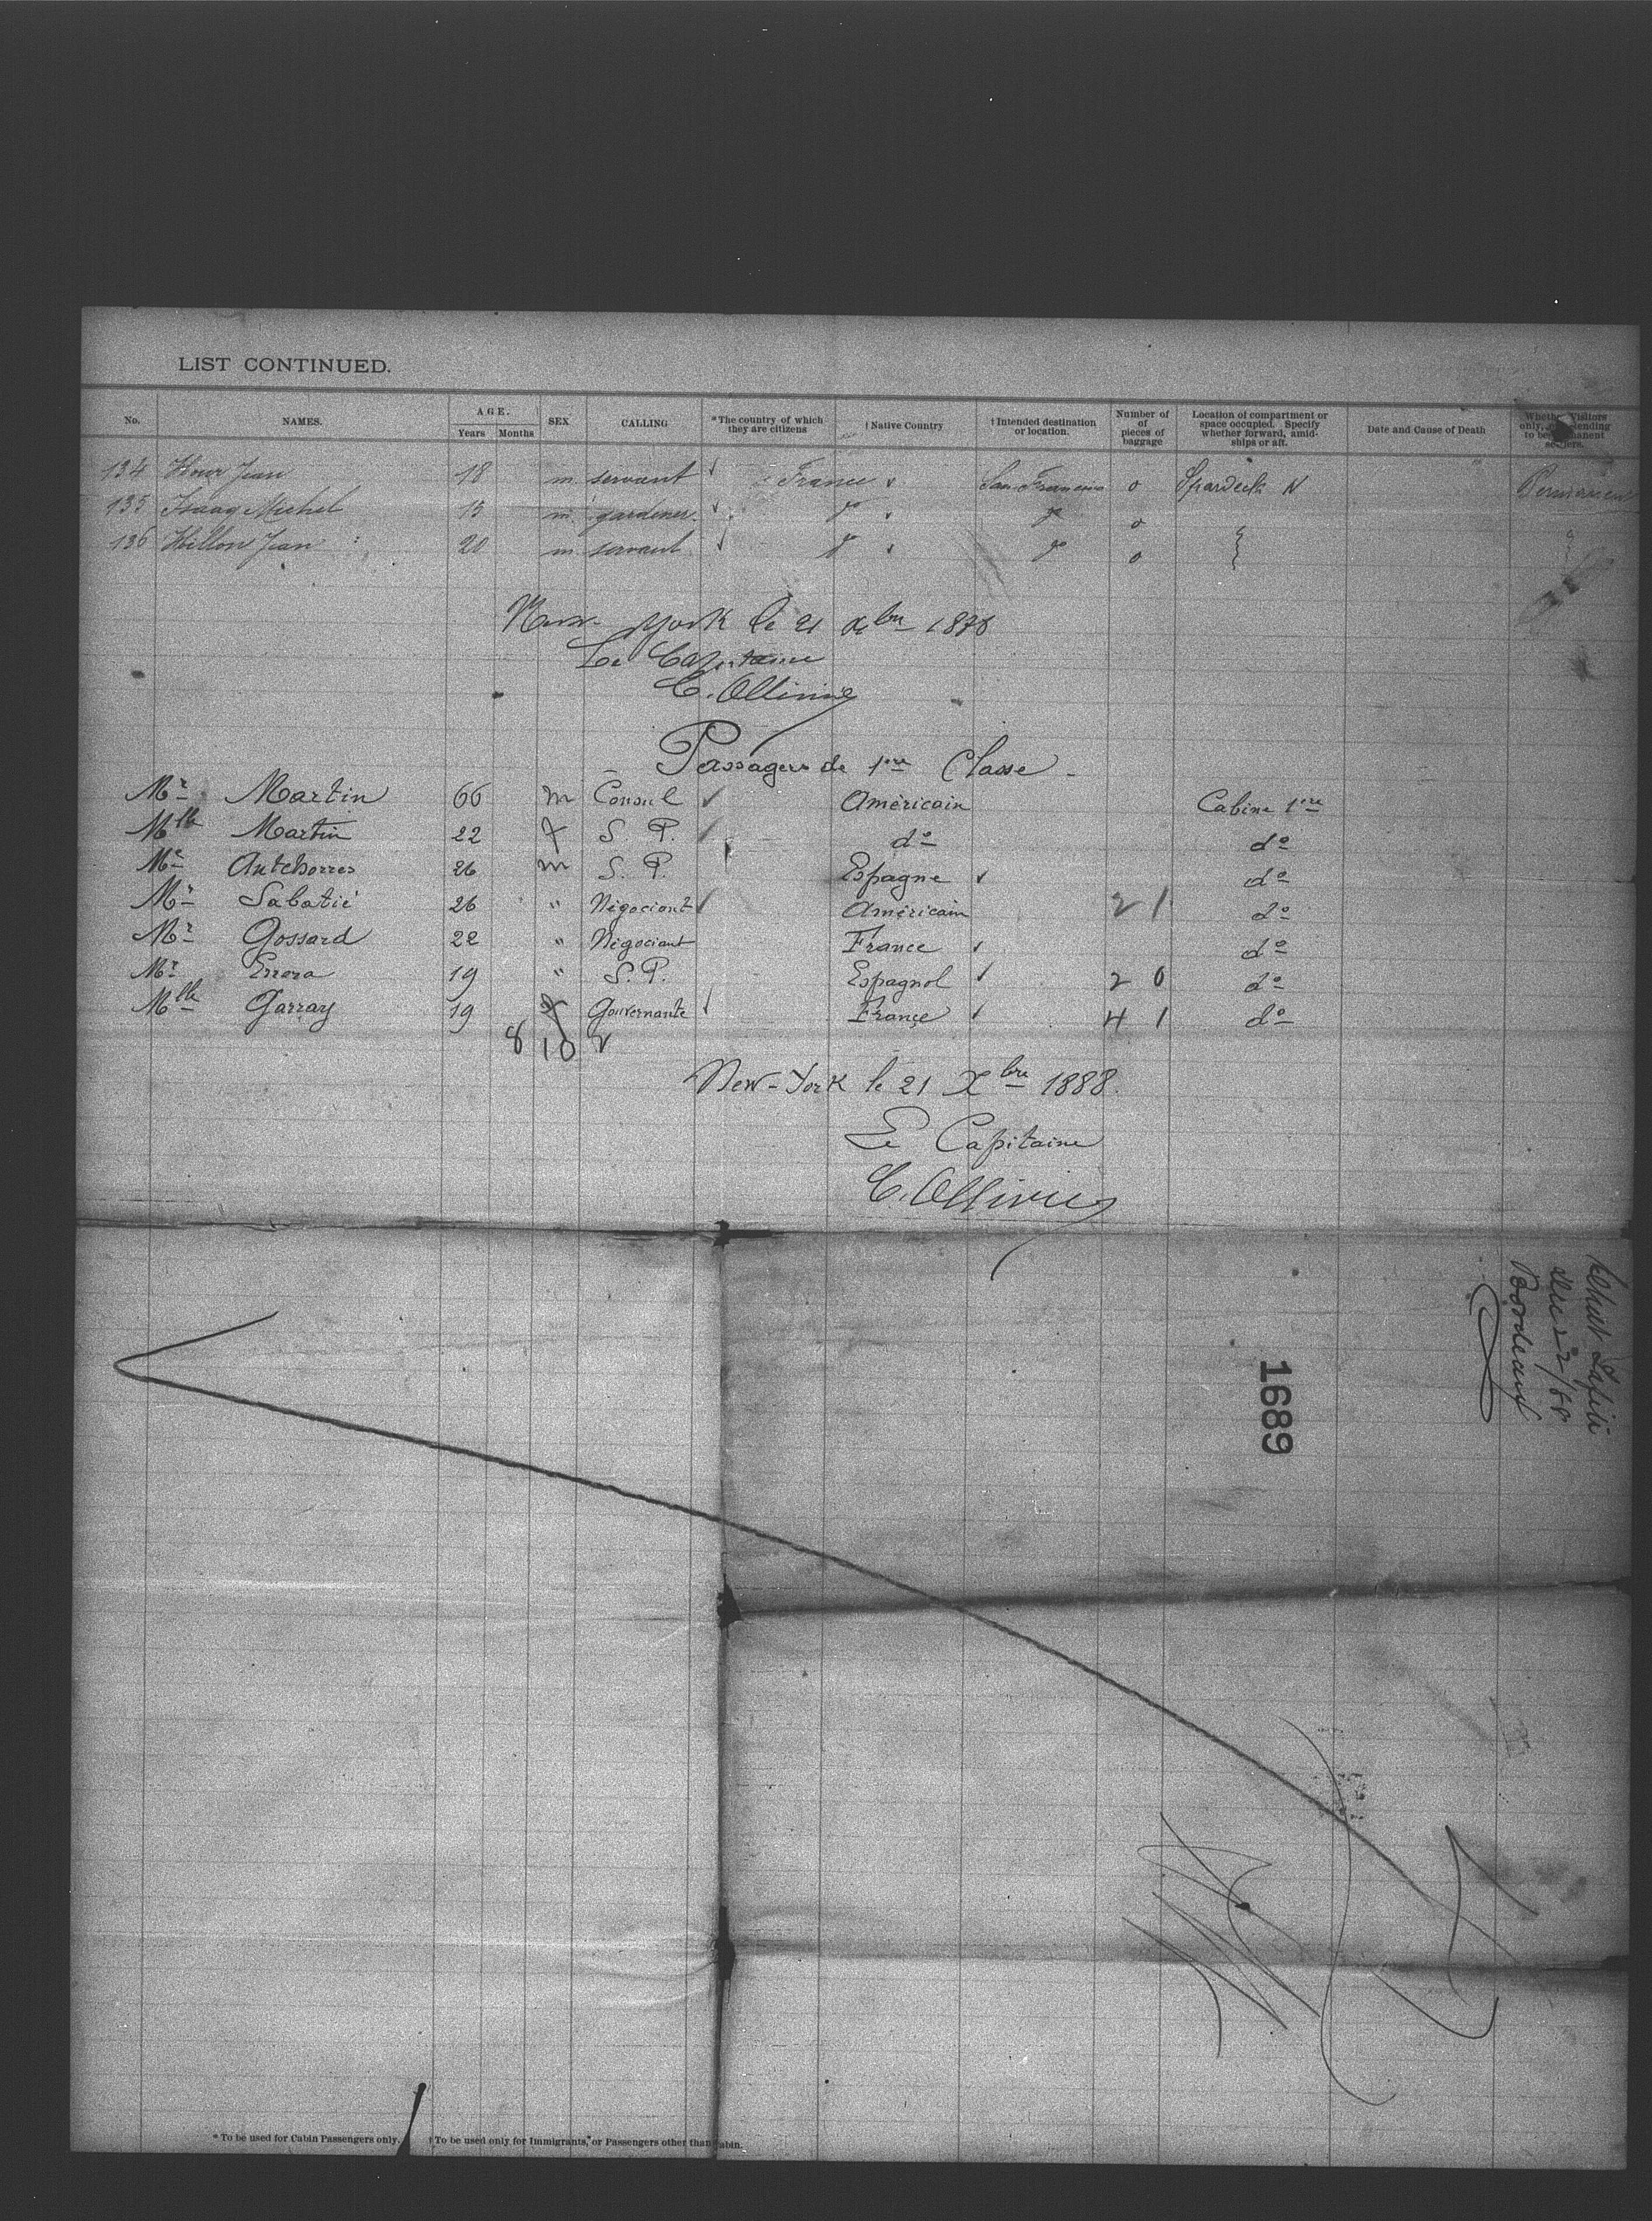 LIST CONTINUED.
No. NAMES. AGE. Years Months SEX CALLING *The country of which they are citizens †Native Country †Intended destination or location. Number of pieces of baggage Location of compartment or space occupied. Specify whether forward, amidships or aft. Date and Cause of Death Visitors only, to be
134 Jean 18 m servant France San Francisco 0 Spardeck N Permanent
135 Haag Michel 15 m gardener 0
136 Hillon Jean 20 m servant 0
New York le 21 Xbre
Le Capitaine
C. Ollivier
Passagers de 1ère Classe
Mr Martin 66 m Consul Américain Cabine 1ère
Mlle Martin 22 f S. P. do do
Mr 26 m S. P. Espagne do
Mr Sabatié 26 " Négociant Américain 2 1 do
Mr Gossard 22 " Négociant France do
Mr Errera 19 " S. P. Espagnol 2 0 do
Mlle Garray 19 Gouvernante France 4 1 do
8 10
New-York le 21 Xbre 1888.
Le Capitaine
C. Ollivier
Bordeaux
1689
* To be used for Cabin Passengers only. † To be used only for Immigrants, or Passengers other than Cabin.